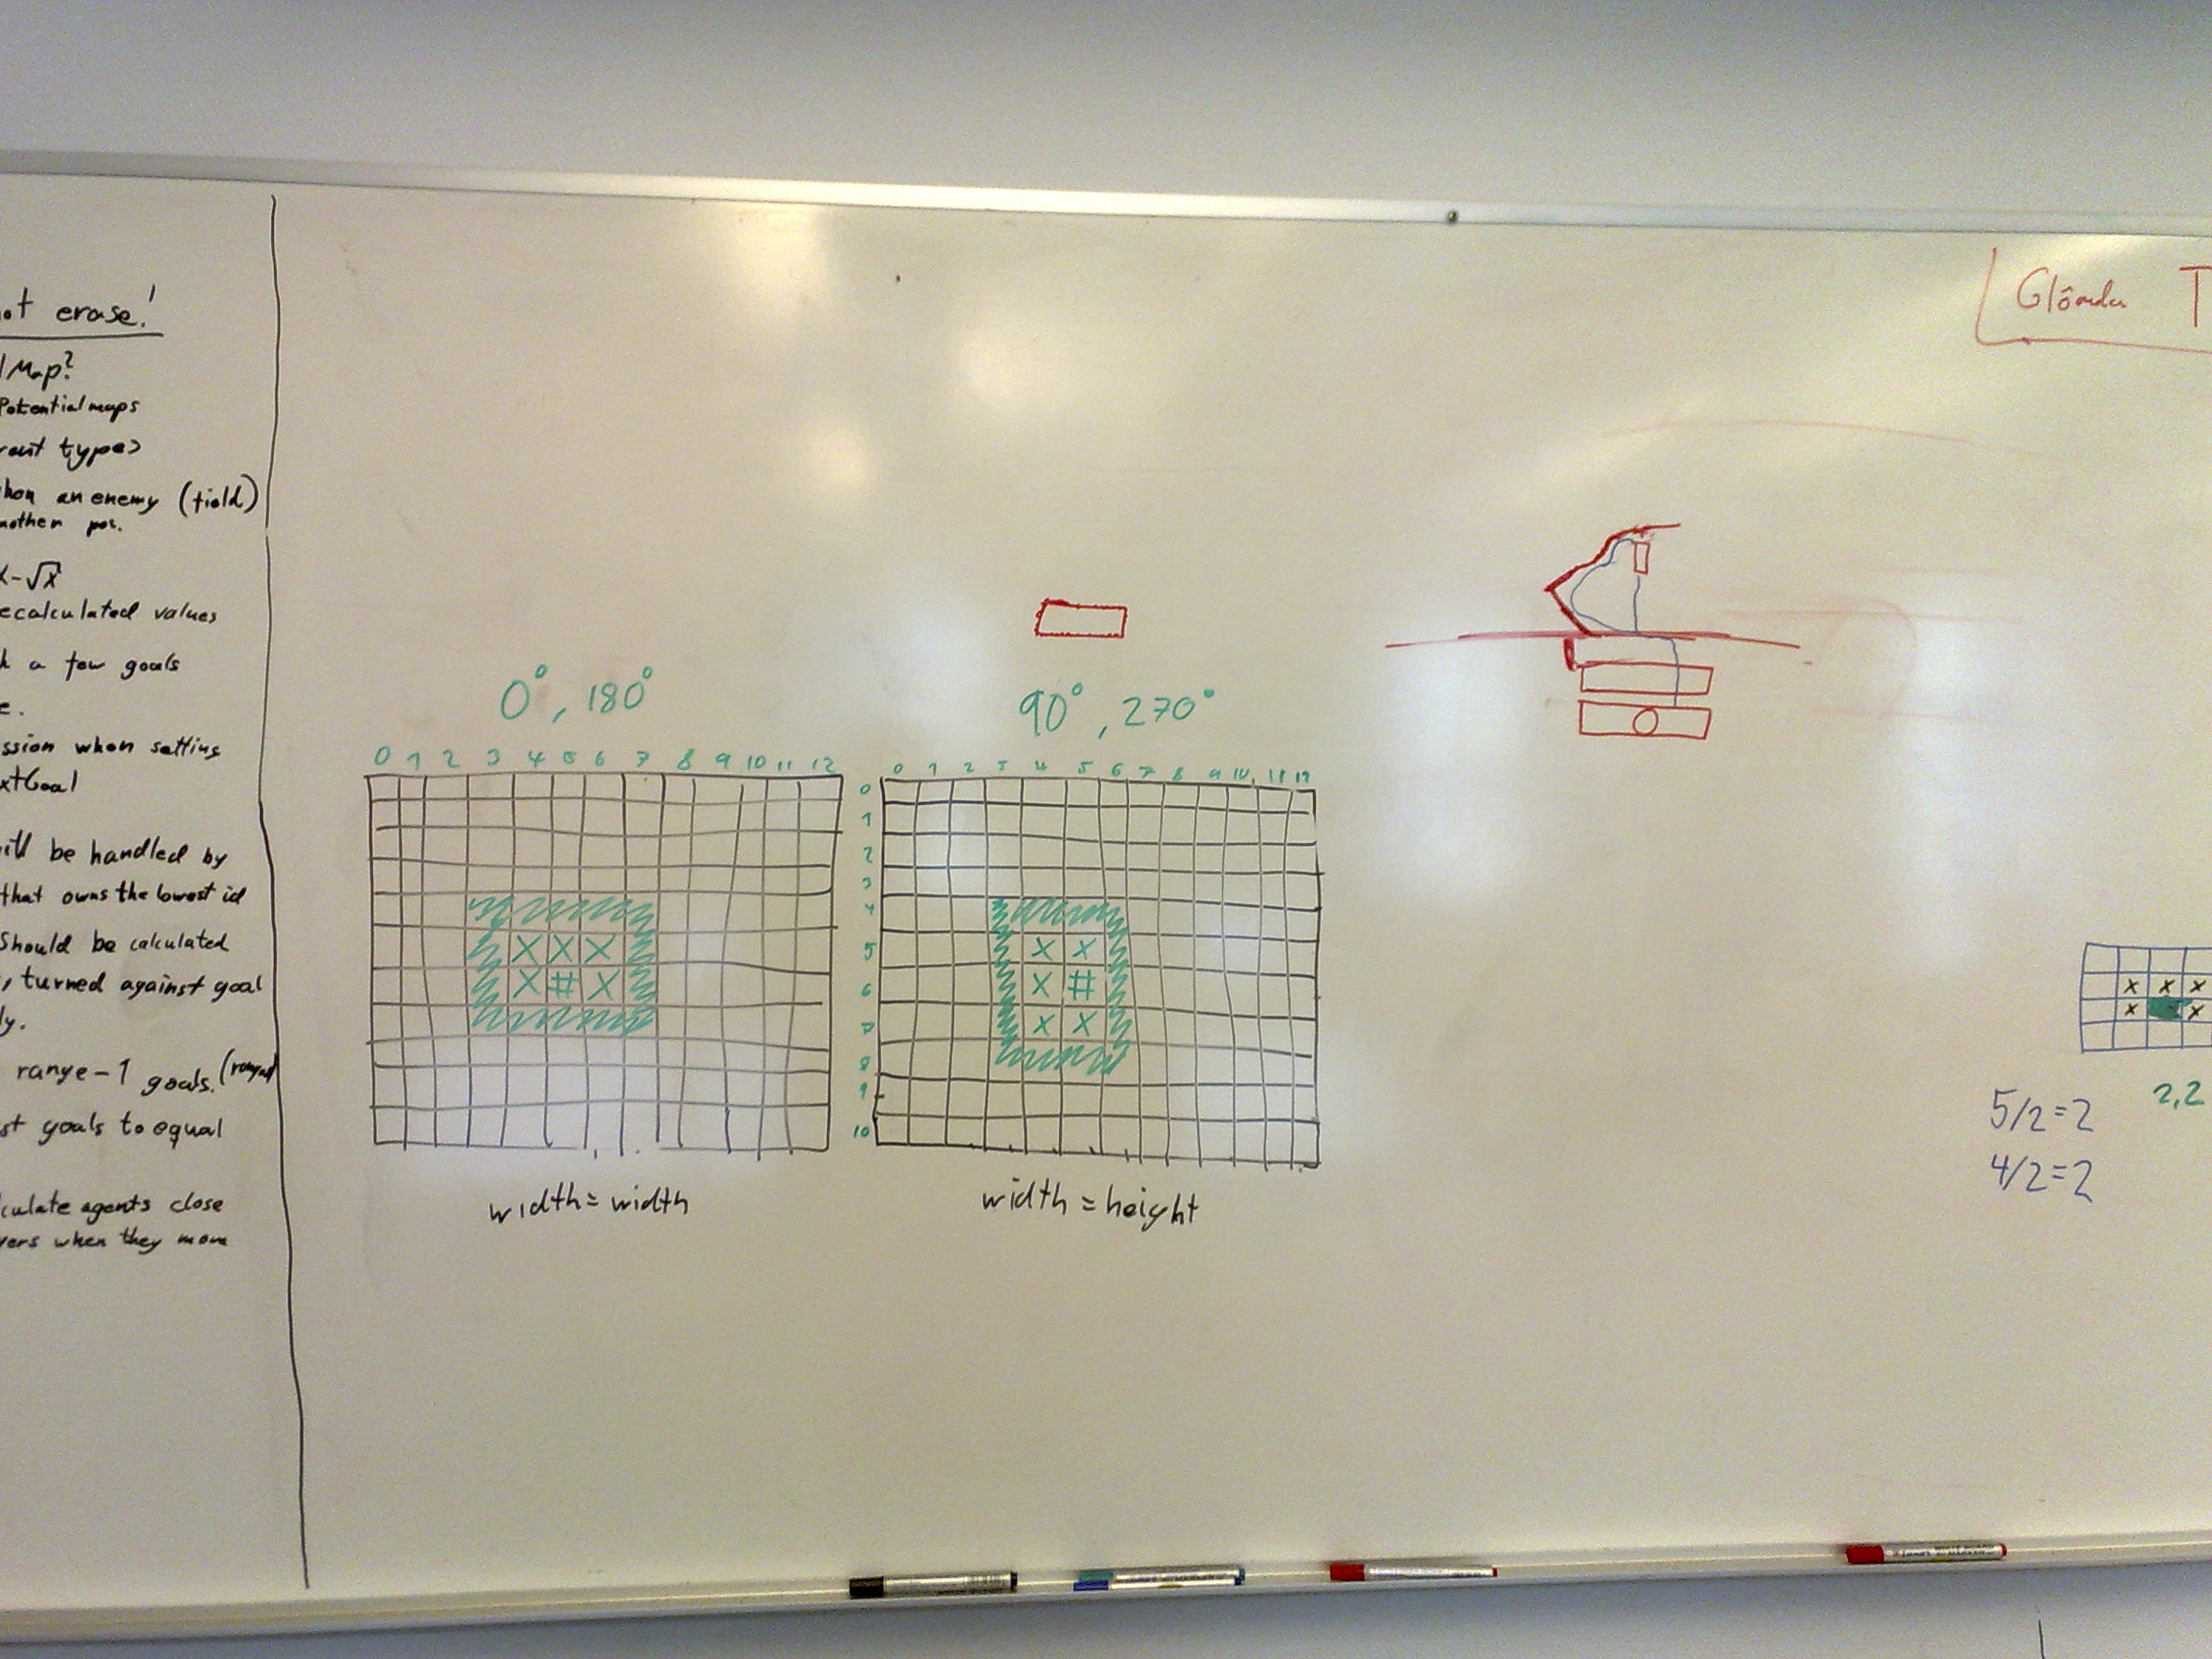 ot erase!
Map?
Potential maps
types
an enemy (field)
another pos.
x-√x
ecalculated values
a few goals
e.
ssion when setting
xtGoal
ill be handled by
that owns the lowest id
Should be calculated
, turned against goal
ly.
range-1 goals.
st goals to equal
culate agents close
yers when they move
0°, 180°
0 1 2 3 4 5 6 7 8 9 10 11 12
X X X
X # X
width = width
90°, 270°
0 1 2 3 4 5 6 7 8 9 10 11 12
0
1
2
3
4
5
6
7
8
9
10
X X
X #
X X
width = height
T
x x x
x x
5/2=2
2,2
4/2=2